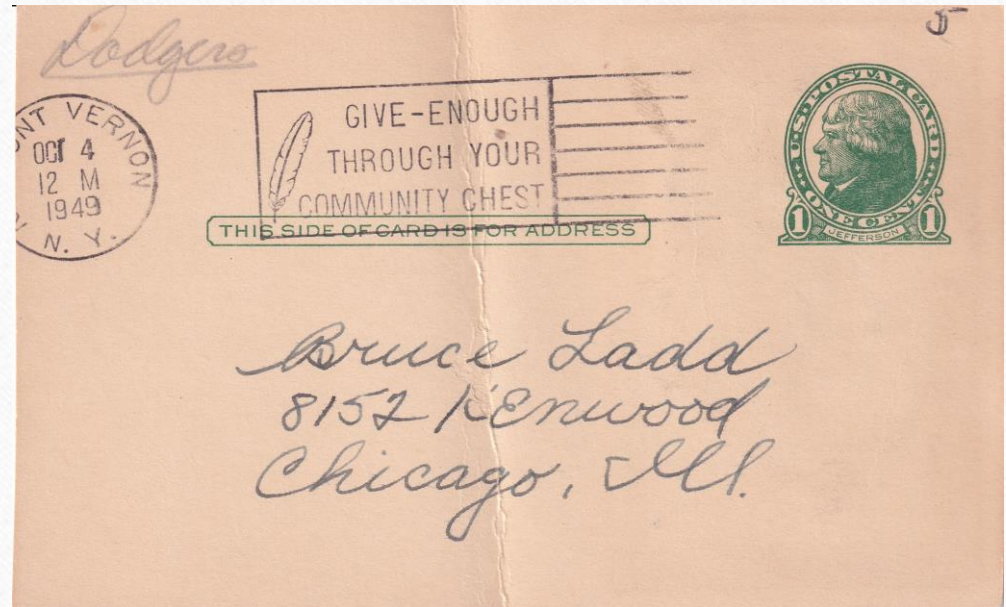 5
Dodgers
MOUNT VERNON
OCT 4
12 M
1949
N. Y.
GIVE-ENOUGH
THROUGH YOUR
COMMUNITY CHEST
THIS SIDE OF CARD IS FOR ADDRESS
U.S. POSTAL CARD
ONE CENT
1 1
JEFFERSON
Bruce Ladd
8152 Kenwood
Chicago, Ill.